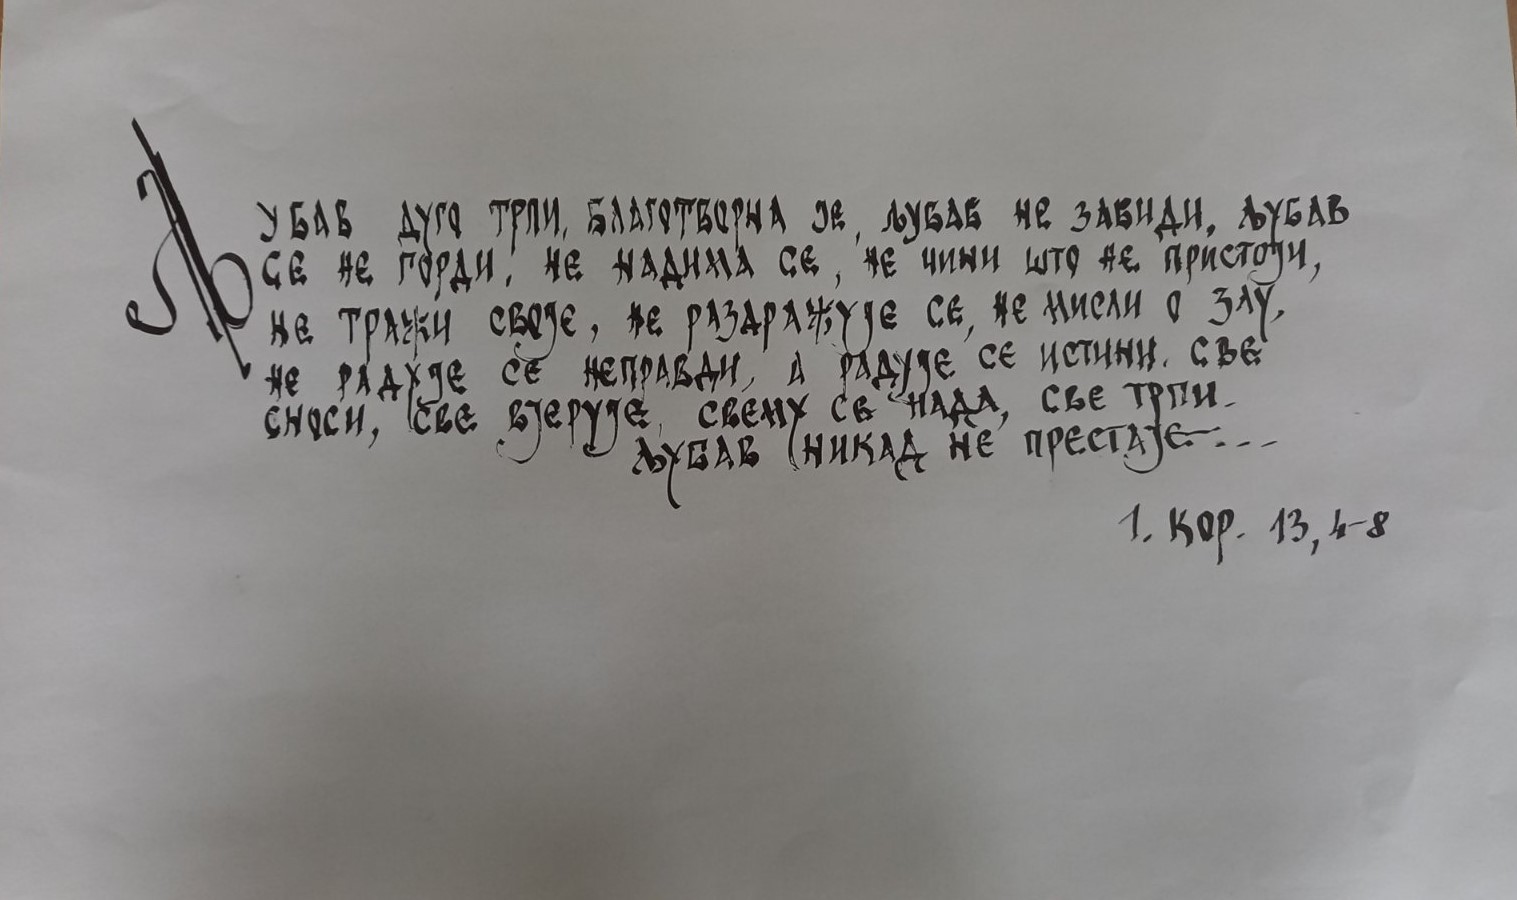 Љубав дуго трпи, благотворна је, љубав не завиди, љубав
се не горди, не надима се, не чини што не пристоји,
не тражи своје, не раздражује се, не мисли о злу,
не радује се неправди, а радује се истини. Све
сноси, све вјерује, свему се нада, све трпи.
Љубав никад не престаје...
1. Кор. 13, 4-8